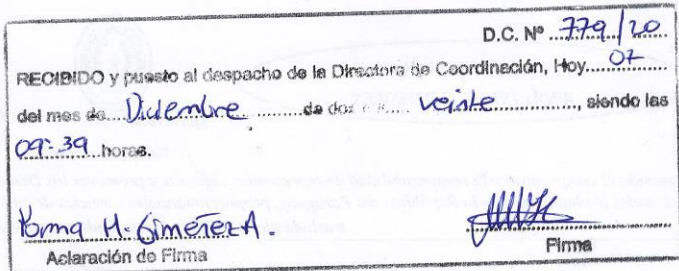 D.C. Nº 779/20
RECIBIDO y puesto al despacho de la Directora de Coordinación, Hoy 07
del mes de Diciembre de dos veinte, siendo las
09:39 horas.
H. Gimenez A.
Aclaración de Firma
Firma